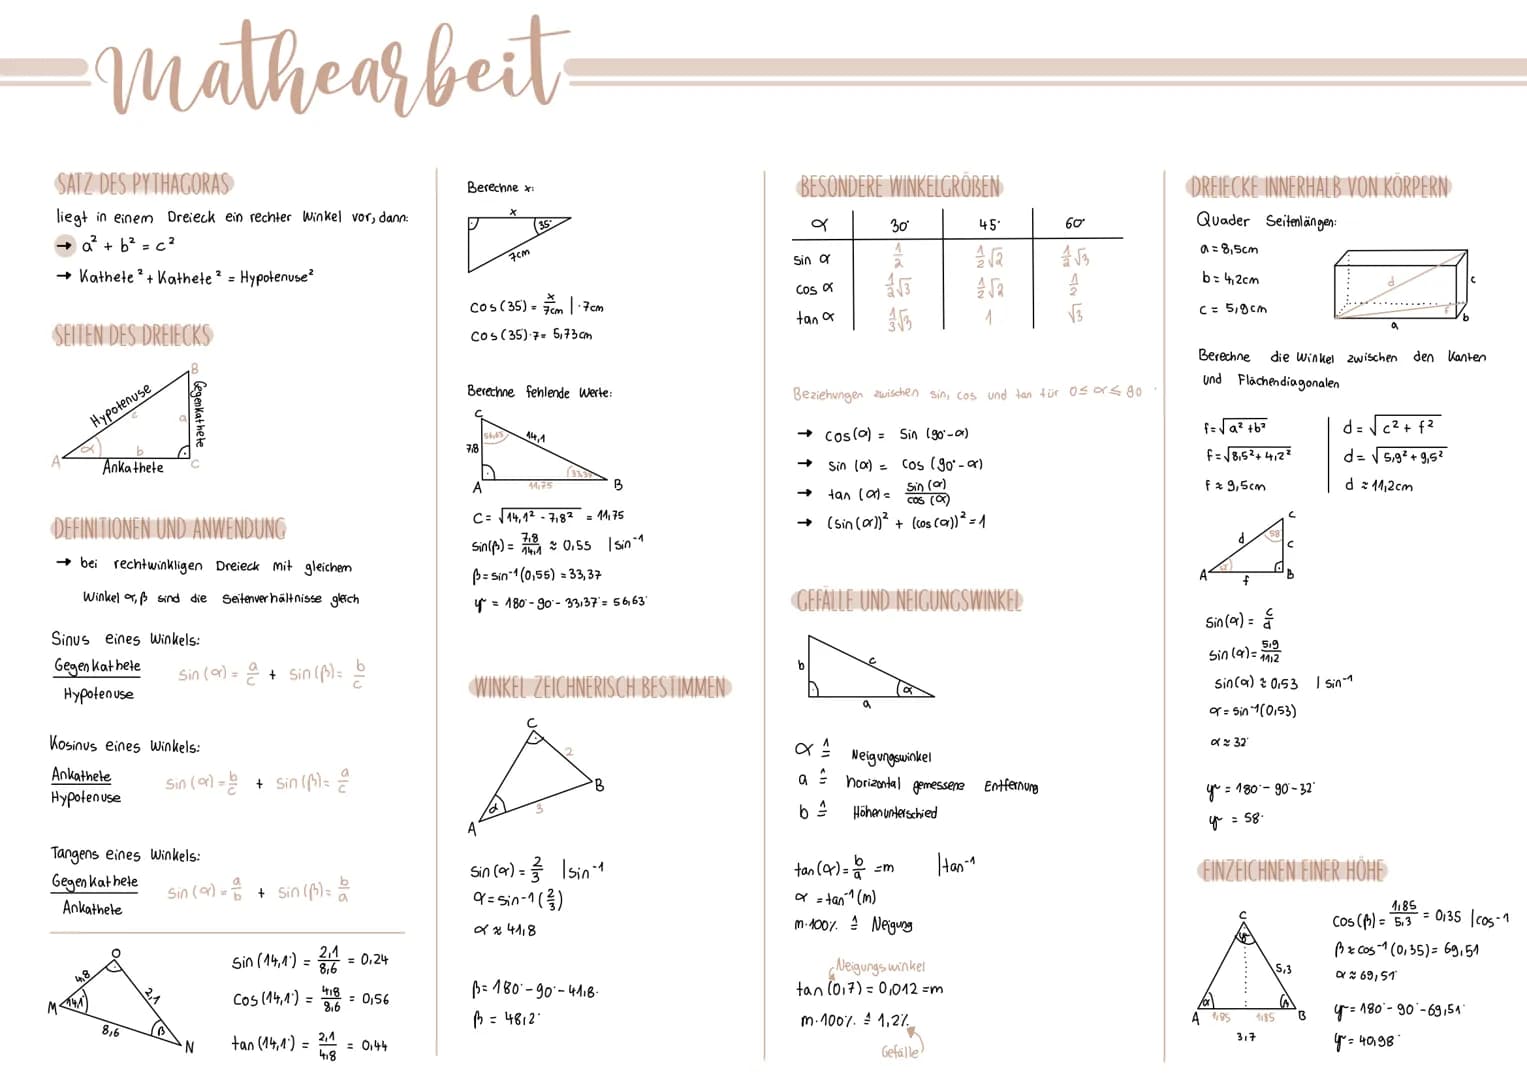 Mathearbeit
SATZ DES PYTHAGORAS
liegt in einem Dreieck ein rechter Winkel vor, dann:
→ a² + b² = c²
→ Kathete² + Kathete² = Hypotenuse²
SEITEN DES DREIECKS
B
Hypotenuse
c
Gegenkathete
a
α
b
A
Ankathete
C
DEFINITIONEN UND ANWENDUNG
→ bei rechtwinkligen Dreieck mit gleichem
Winkel α, β sind die Seitenverhältnisse gleich
Sinus eines Winkels:
Gegenkathete
Hypotenuse
sin (α) = a/c + sin (β) = b/c
Kosinus eines Winkels:
Ankathete
Hypotenuse
sin (α) = b/c + sin (β) = a/c
Tangens eines Winkels:
Gegenkathete
Ankathete
sin (α) = a/b + sin (β) = b/a
O
4,8
2,1
M
14,1°
8,6
β
N
sin (14,1°) = 2,1/8,6 = 0,24
cos (14,1°) = 4,8/8,6 = 0,56
tan (14,1°) = 2,1/4,8 = 0,44
Berechne x:
x
35°
7cm
cos (35) = x/7cm | ·7cm
cos (35) · 7 = 5,73cm
Berechne fehlende Werte:
C
56,63
14,1
7,8
33,37
A
11,75
B
c = √14,1² - 7,8² = 11,75
sin(β) = 7,8/14,1 ≈ 0,55 | sin⁻¹
β = sin⁻¹ (0,55) = 33,37
γ = 180° - 90° - 33,37° = 56,63°
WINKEL ZEICHNERISCH BESTIMMEN
C
2
B
α
3
A
sin (α) = 2/3 | sin⁻¹
α = sin⁻¹ (2/3)
α ≈ 41,8
β = 180° - 90° - 41,8°
β = 48,2°
BESONDERE WINKELGRÖßEN
α 30° 45° 60°
sin α 1/2 1/2√2 1/2√3
cos α 1/2√3 1/2√2 1/2
tan α 1/3√3 1 √3
Beziehungen zwischen sin, cos und tan für 0 ≤ α ≤ 90°
→ cos(α) = sin (90°-α)
→ sin (α) = cos (90°-α)
→ tan (α) = sin (α)/cos (α)
→ (sin(α))² + (cos(α))² = 1
GEFÄLLE UND NEIGUNGSWINKEL
b
c
α
a
α ≙ Neigungswinkel
a ≙ horizontal gemessene Entfernung
b ≙ Höhenunterschied
tan (α) = b/a = m | tan⁻¹
α = tan⁻¹ (m)
m·100% ≙ Neigung
Neigungswinkel
tan (0,7) = 0,012 = m
m·100% ≙ 1,2%
Gefälle
DREIECKE INNERHALB VON KÖRPERN
Quader Seitenlängen:
a = 8,5cm
b = 4,2cm
c = 5,9cm
d
c
f
b
a
Berechne die Winkel zwischen den Kanten
und Flächendiagonalen
f = √a² + b²
f = √8,5² + 4,2²
f ≈ 9,5cm
d = √c² + f²
d = √5,9² + 9,5²
d ≈ 11,2cm
C
58
d
c
A
α
f
B
sin (α) = c/d
sin (α) = 5,9/11,2
sin (α) ≈ 0,53 | sin⁻¹
α = sin⁻¹ (0,53)
α ≈ 32°
γ = 180° - 90° - 32°
γ = 58°
EINZEICHNEN EINER HÖHE
C
γ
5,3
α
β
A 1,85 1,85 B
3,7
cos (β) = 1,85/5,3 = 0,35 | cos-1
β ≈ cos⁻¹ (0,35) = 69,51
α ≈ 69,51°
γ = 180° - 90° - 69,51°
γ = 40,98°